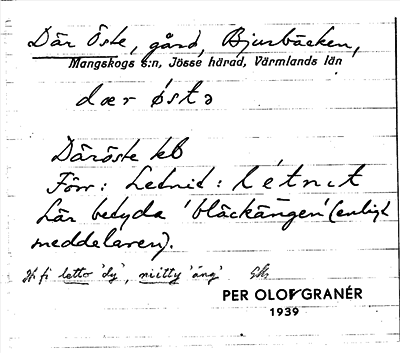 Där Öste, gård, Bjurbäcken,
Mangskogs s:n, Jösse härad, Värmlands län
dær østə
Däröste kb
Förr: Letnit: létnɩt
Lär betyda 'bläckängen' (enligt
meddelaren).
Jf fi letto 'dy', niitty 'äng'
PER OLOF GRANÉR
1939